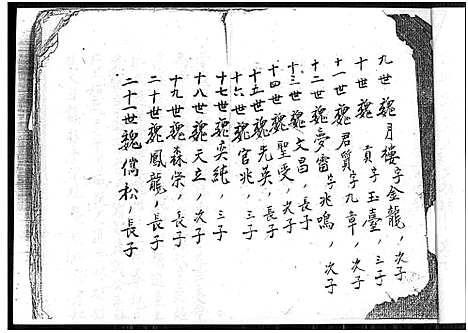 九世魏月樓字金龍，次子
十世魏貢字玉臺，三子
十一世魏君質字九章，次子
十二世魏夢雷字兆鳴，次子
十三世魏文昌，長子
十四世魏聖受，次子
十五世魏先英，長子
十六世魏官兆，三子
十七世魏奕純，三子
十八世魏天立，次子
十九世魏森崇，長子
二十世魏鳳龍，長子
二十一世魏儁松，長子